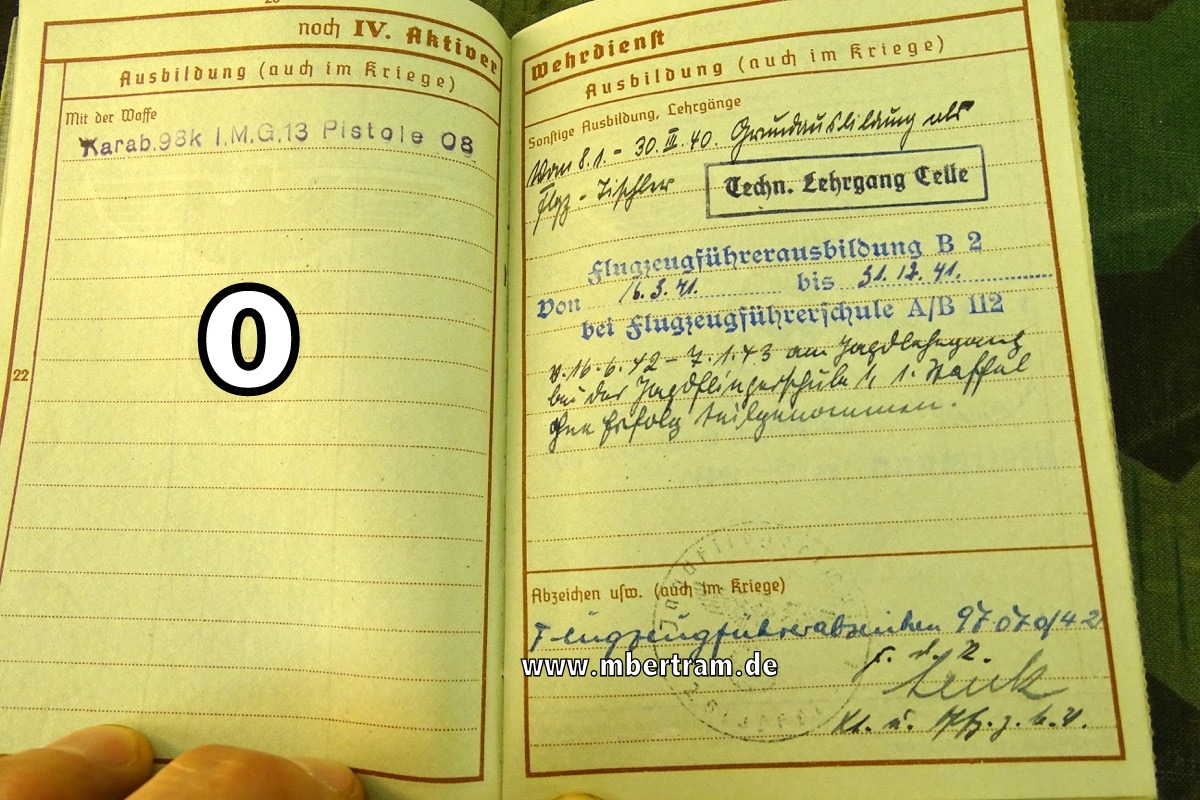 noch IV. Aktiver
Ausbildung (auch im Kriege)
Mit der Waffe
Karab.98k l.M.G.13 Pistole 08
22
O
Wehrdienst
Ausbildung (auch im Kriege)
Sonstige Ausbildung, Lehrgänge
Vom 8.1. - 30.III.40. Grundausbildung als
Flgz-Tischler
Techn. Lehrgang Celle
Flugzeugführerausbildung B 2
Von 16.3.41. bis 31.12.41.
bei Flugzeugführerschule A/B 112
v. 16.6.42 - 7.1.43 am Jagdlehrgang
bei der Jagdfliegerschule 1, 1. Staffel
ohne Erfolg teilgenommen.
Abzeichen usw. (auch im Kriege)
Flugzeugführerabzeichen 97070/42
www.mbertram.de